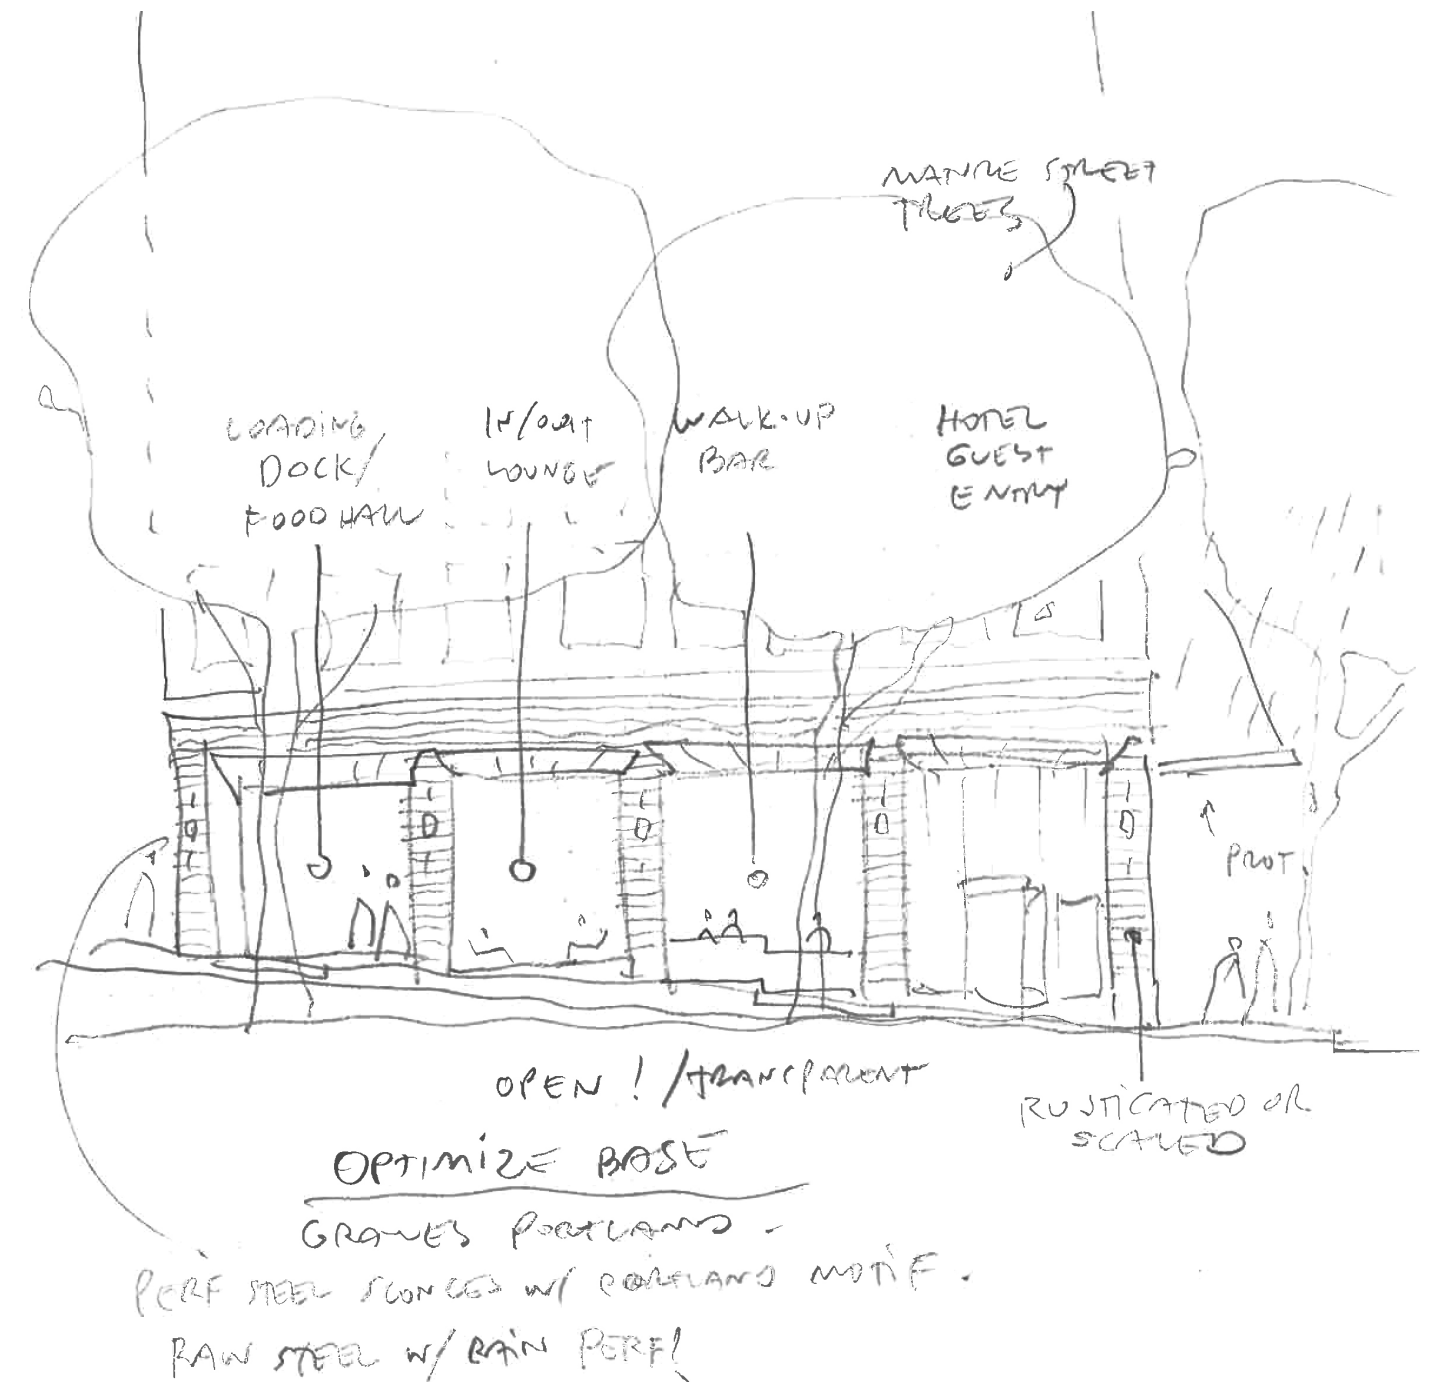 MATURE STREET
TREES
LOADING
DOCK/
FOOD HALL
IN/OUT
LOUNGE
WALK-UP
BAR
HOTEL
GUEST
ENTRY
PROT.
OPEN! / TRANSPARENT
RUSTICATED OR
SCALED
OPTIMIZE BASE
GRAVES PORTLAND -
PERF STEEL SCONCES W/ PORTLAND MOTIF.
RAW STEEL W/ RAIN PERF!